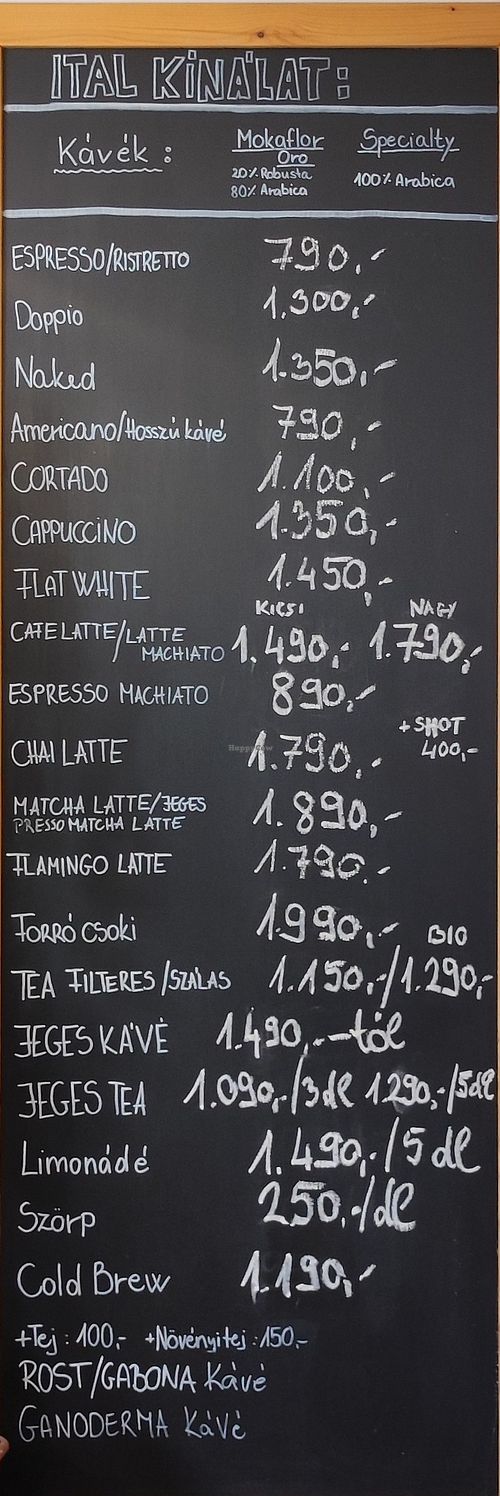 ITAL KÍNÁLAT:
Kávék: Mokaflor Oro Specialty
20% Robusta
80% Arabica 100% Arabica
ESPRESSO/RISTRETTO 790,-
Doppio 1.300,-
Naked 1.350,-
Americano/Hosszú kávé 790,-
CORTADO 1.100,-
CAPPUCCINO 1.350,-
FLAT WHITE 1.450,-
KICSI NAGY
CAFE LATTE/LATTE MACHIATO 1.490,- 1.790,-
ESPRESSO MACHIATO 890,-
+SHOT
CHAI LATTE 1.790,- 400,-
MATCHA LATTE/JEGES 1.890,-
PRESSO MATCHA LATTE
FLAMINGO LATTE 1.790.-
Forró csoki 1.990,-
BIO
TEA FILTERES/SZÁLAS 1.150,-/1.290,-
JEGES KÁVÉ 1.490,.-tól
JEGES TEA 1.090,-/3dl 1290,-/5dl
Limonádé 1.490,-/5 dl
Szörp 250,-/dl
Cold Brew 1.190,-
+Tej: 100,- +Növényi tej: 150,-
ROST/GABONA Kávé
GANODERMA Kávé
HappyCow